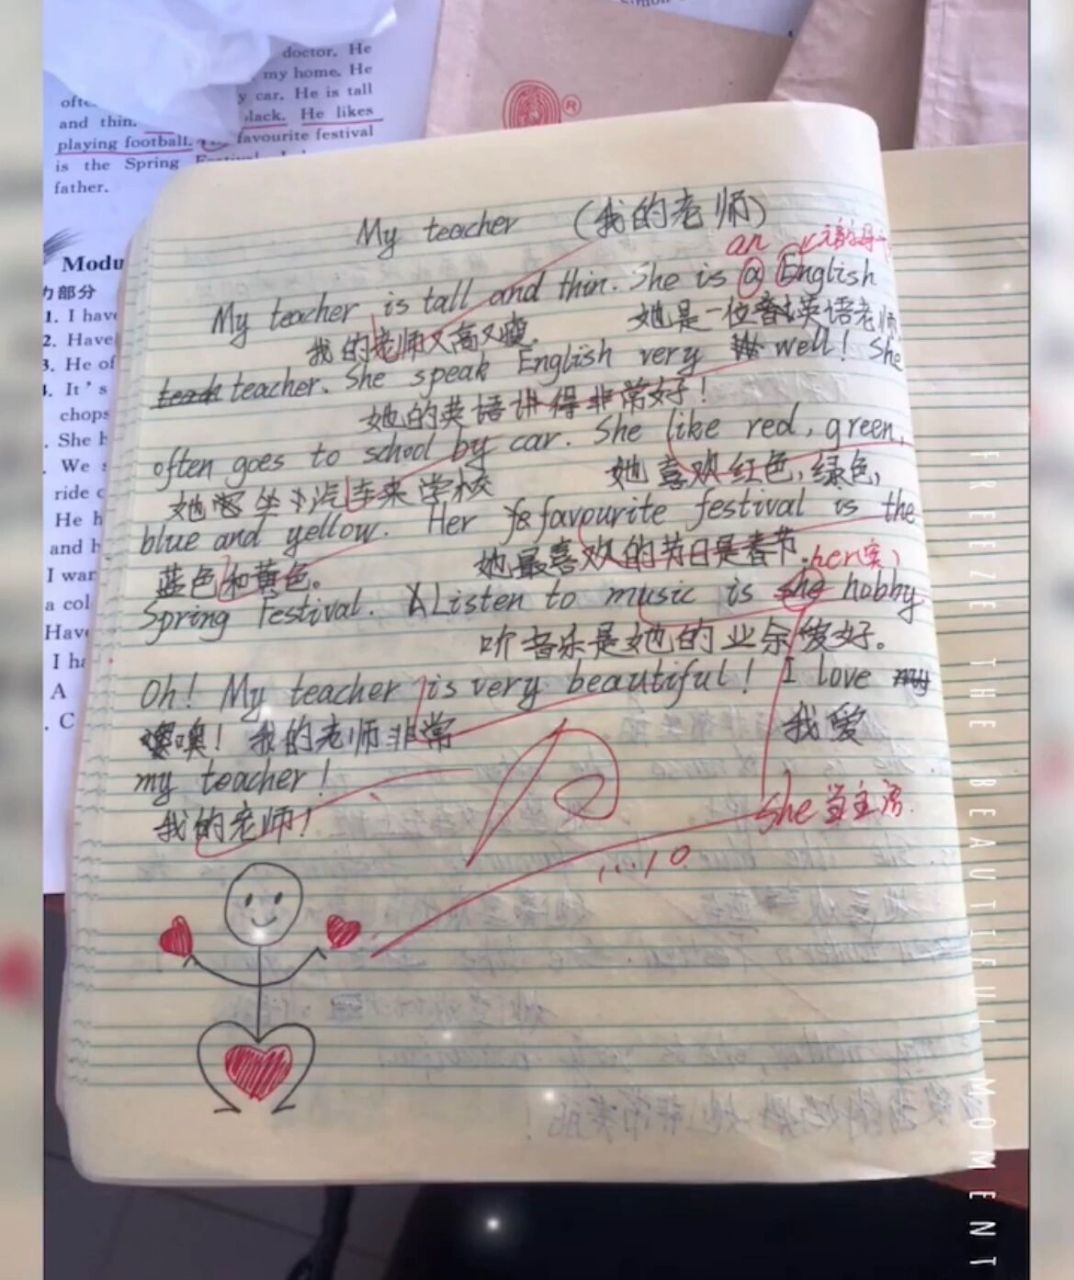 doctor. He
my home. He
y car. He is tall
and thin. lack. He likes
playing football. favourite festival
is the Spring
father.
Modu
力部分
1. I have
2. Have
3. He of
4. It's
chops
. She h
. We s
ride c
He h
and h
I wan
a col
Have
I ha
A
. C
®
My teacher (我的老师)
an
My teacher is tall and thin. She is a English
我的老师又高又瘦. 她是一位英语老师
teacher. She speak English very well! She
她的英语讲得非常好!
often goes to school by car. She like red, green,
她坐汽车来学校 她喜欢红色,绿色,
blue and yellow. Her favourite festival is the
蓝色和黄色。 她最喜欢的节日是春节.
her(宾)
Spring Festival. Listen to music is she hobby
听音乐是她的业余爱好。
Oh! My teacher is very beautiful! I love
噢! 我的老师非常 我爱
my teacher!
我的老师!
She 当主语.
10
FREEZE THE BEAUTIFUL MOMENT